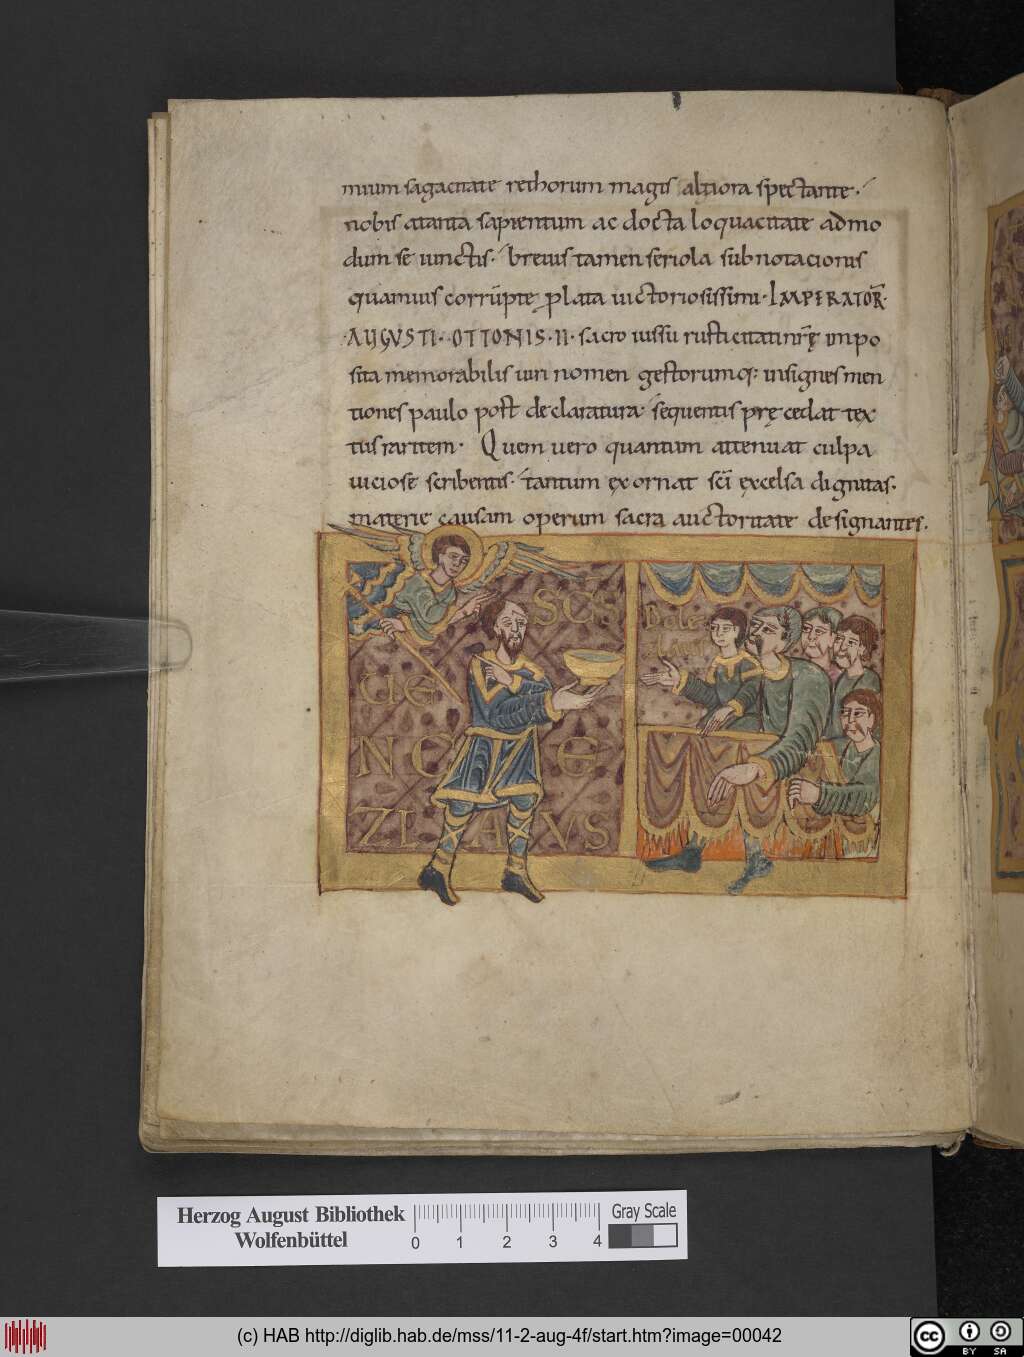 mium sagacitate rethorum magis altiora spectante.
nobis a tanta sapientum ac docta loquacitate admo
dum seiunctis. brevis tamen seriola subnotacionis
quamuis corrupte plata uictoriosissimi. IMPERATOR̄.
.AUGUSTI. OTTONIS.II. sacro iussu rusticitati nr̄ę impo
sita memorabilis uiri nomen gestorumq; insignes men
tiones paulo post declaratura sequentis pręcedat tex
tus
Quem uero quantum attenuat culpa
uiciose scribentis. tantum exornat sc̄i excelsa dignitas.
materie causam operum sacra auctoritate designantes.
SC̄S
UE
NC E
ZL AVS
Bole
zlauus
Herzog August Bibliothek
Wolfenbüttel
0 1 2 3 4
Gray Scale
(c) HAB http://diglib.hab.de/mss/11-2-aug-4f/start.htm?image=00042
cc BY SA